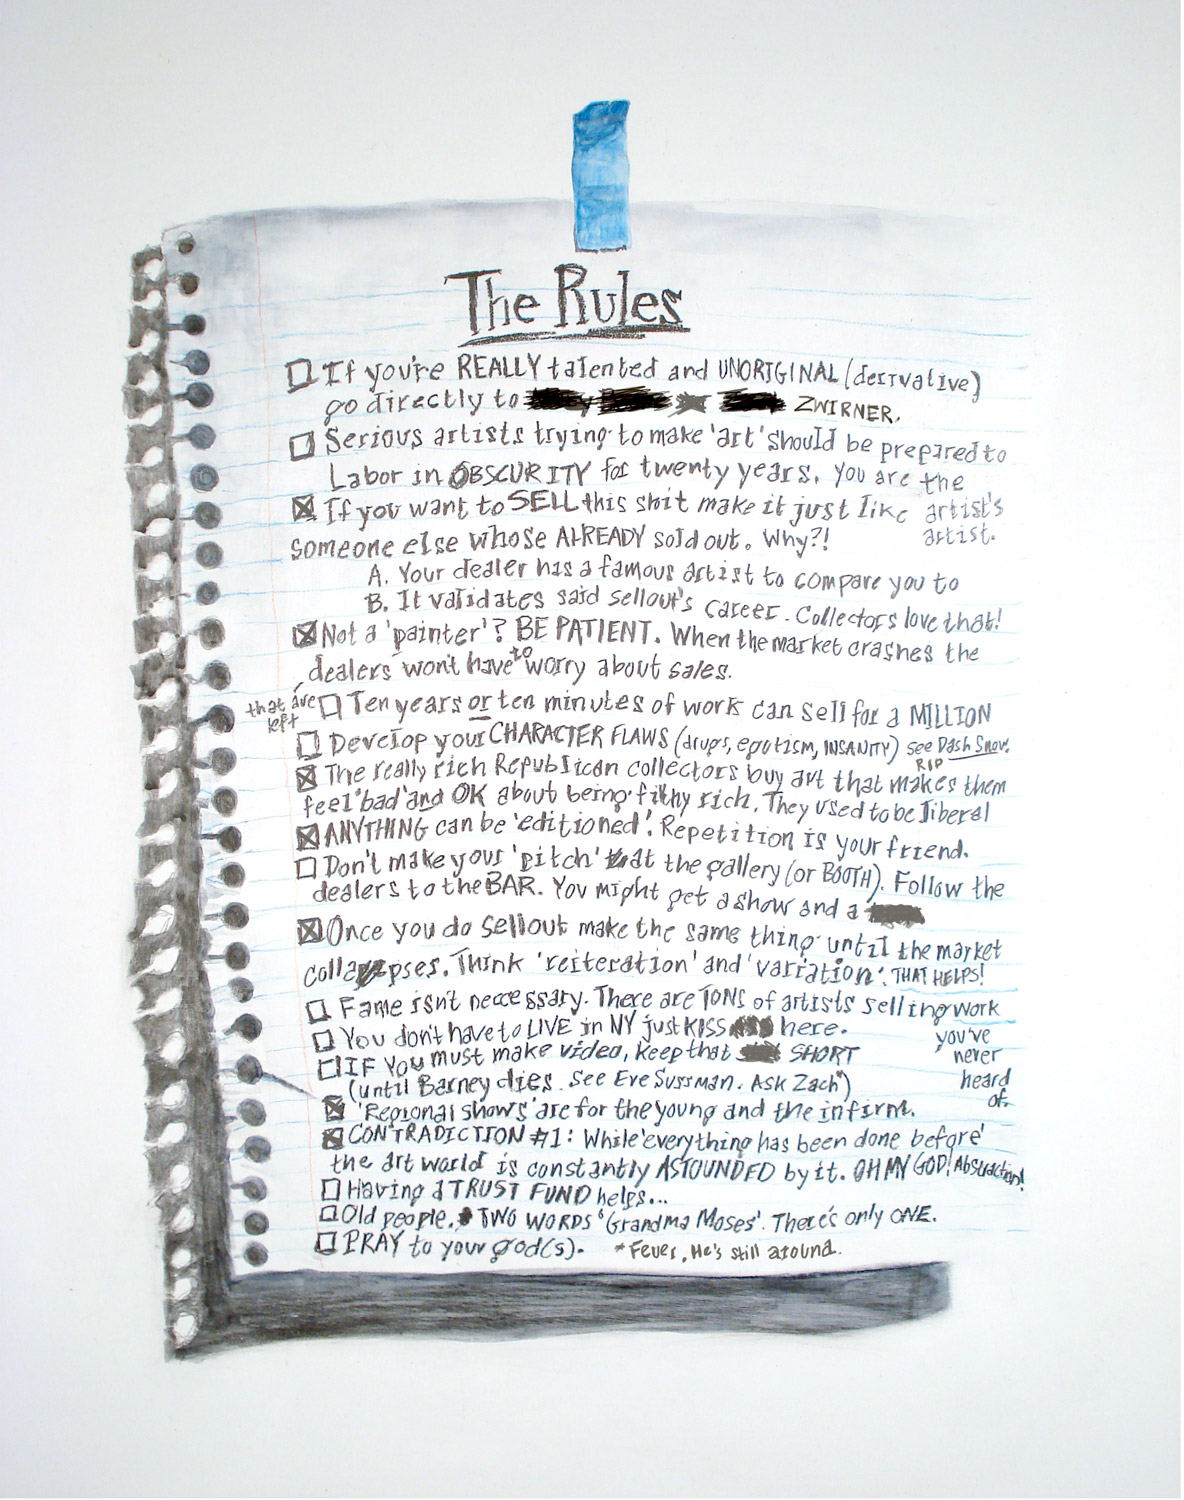 The Rules
If you're REALLY talented and UNORIGINAL (derivative)
go directly to ZWIRNER.
Serious artists trying to make 'art' should be prepared to
Labor in OBSCURITY for twenty years. You are the
artist's
artist.
If you want to SELL this shit make it just like
someone else whose ALREADY sold out. Why?!
A. Your dealer has a famous artist to compare you to
B. It validates said sellout's career. Collectors love that!
Not a 'painter'? BE PATIENT. When the market crashes the
dealers won't have to worry about sales.
that are
left
Ten years or ten minutes of work can sell for a MILLION
Develop your CHARACTER FLAWS (drugs, egotism, INSANITY) see Dash Snow.
RIP
The really rich Republican collectors buy art that makes them
feel 'bad' and OK about being filthy rich. They used to be liberal
ANYTHING can be 'editioned'. Repetition is your friend.
Don't make your 'pitch' at the gallery (or BOOTH). Follow the
dealers to the BAR. You might get a show and a
Once you do sellout make the same thing until the market
collapses. Think 'reiteration' and 'variation'. THAT HELPS!
Fame isn't neccessary. There are TONS of artists selling work
you've
never
heard
of.
You don't have to LIVE in NY just KISS here.
IF You must make video, keep that SHORT
(until Barney dies. See Eve Sussman. Ask Zach*)
'Regional shows' are for the young and the infirm.
CONTRADICTION #1: While 'everything has been done before'
the art world is constantly ASTOUNDED by it. OH MY GOD! Abstraction!
Having a TRUST FUND helps...
Old people. TWO WORDS 'Grandma Moses'. There's only ONE.
PRAY to your god(s). *Feuer, He's still around.